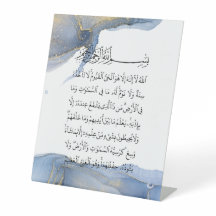 بِسْمِ اللهِ الرَّحْمٰنِ الرَّحِيْمِ
اَللهُ لَا اِلٰهَ اِلَّا هُوَ الْحَيُّ الْقَيُّوْمُ لَا تَأْخُذُهُ
سِنَةٌ وَّلَا نَوْمٌ لَهُ مَا فِي السَّمٰوٰتِ وَمَا
فِي الْاَرْضِ مَنْ ذَا الَّذِيْ يَشْفَعُ عِنْدَهُ اِلَّا
بِاِذْنِهِ يَعْلَمُ مَا بَيْنَ اَيْدِيْهِمْ وَمَا خَلْفَهُمْ
وَلَا يُحِيْطُوْنَ بِشَيْءٍ مِّنْ عِلْمِهِ اِلَّا بِمَا شَاءَ
وَسِعَ كُرْسِيُّهُ السَّمٰوٰتِ وَالْاَرْضَ وَلَا
يَئُوْدُهُ حِفْظُهُمَا وَهُوَ الْعَلِيُّ الْعَظِيْمُ